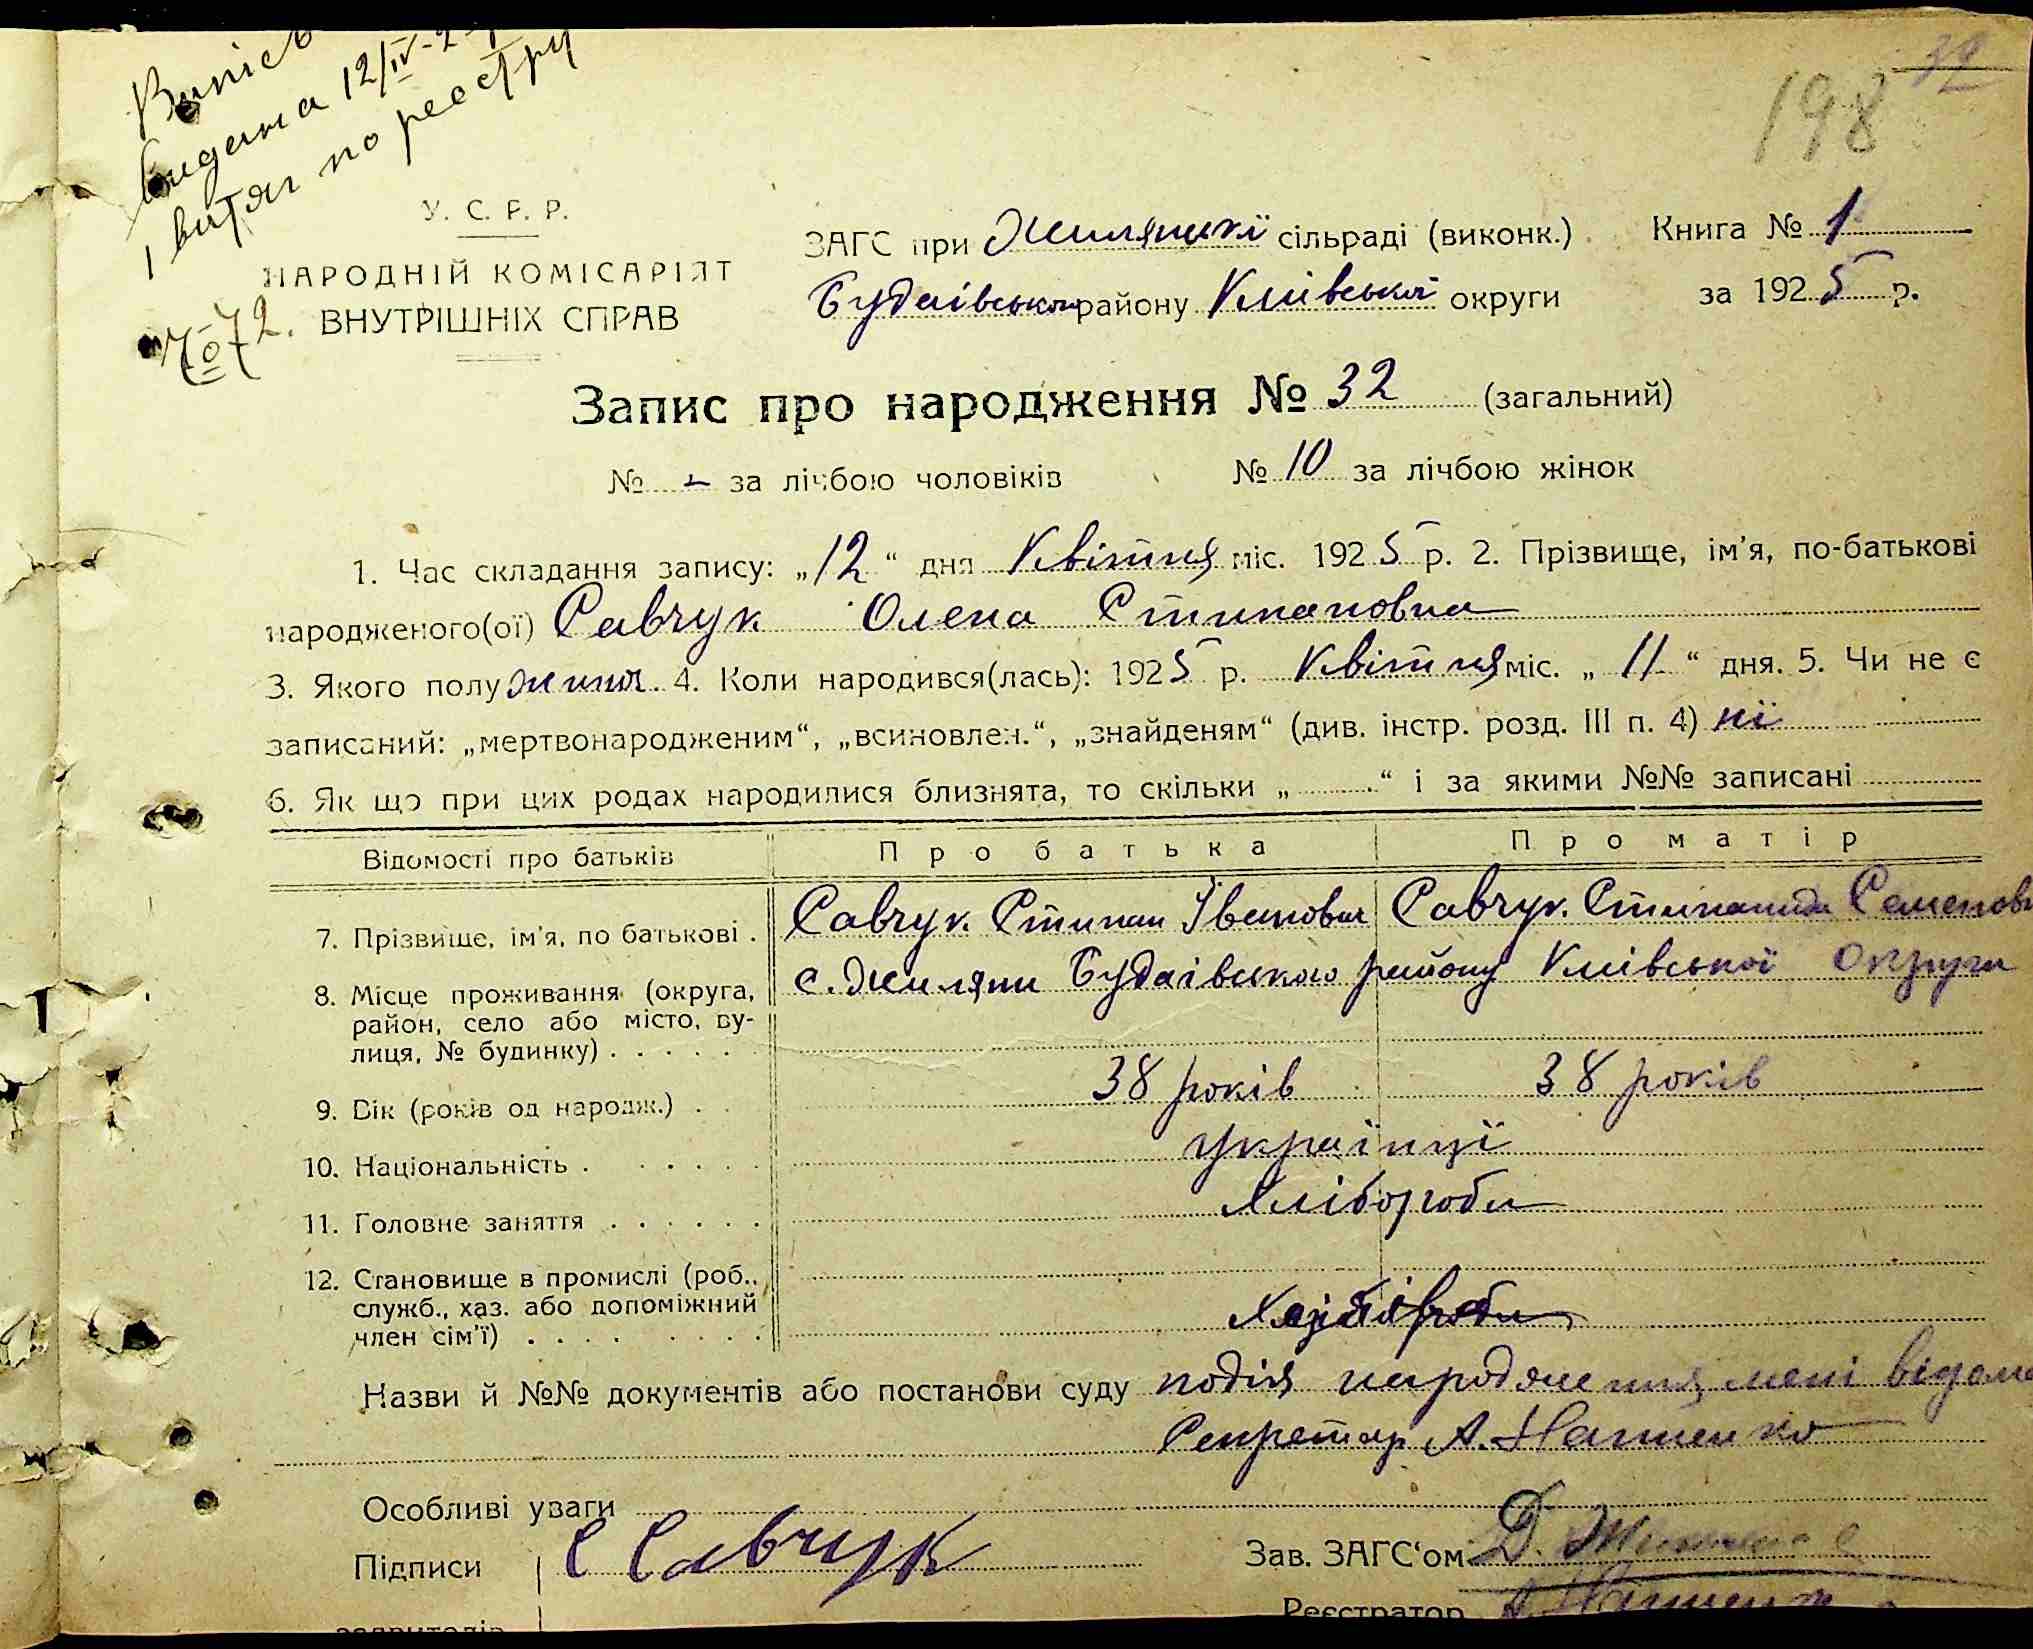 32
198
Випись
видана 12/IV-2
і витяг по реєстру
У. С. Р. Р.
НАРОДНІЙ КОМІСАРІЯТ
ВНУТРІШНІХ СПРАВ
ЗАГС при Жилянські сільраді (виконк.) Книга № 1
Будаівського району Київської округи за 1925 р.
Запис про народження № 32 (загальний)
№ – за лічбою чоловіків № 10 за лічбою жінок
1. Час складання запису: „12“ дня Квітня міс. 1925 р. 2. Прізвище, ім’я, по-батькові
народженого(ої) Савчук Олена Стипановна
3. Якого полу жиноч. 4. Коли народився(лась): 1925 р. Квітня міс. „11“ дня. 5. Чи не є
записаний: „мертвонародженим“, „всиновлен.“, „знайденям“ (див. інстр. розд. III п. 4) ні
6. Як що при цих родах народилися близнята, то скільки „ “ і за якими №№ записані
Відомості про батьків Про батька Про матір
7. Прізвище, ім’я, по батькові . Савчук Стипан Іванович Савчук Стипанида Семеновн
8. Місце проживання (округа, с. Жиляни Будаівського району Київської округи
район, село або місто, ву-
лиця, № будинку) . . . . .
9. Вік (років од народж.) . . 38 років 38 років
10. Національність . . . . . . українці
11. Головне заняття . . . . . . Хлібороби
12. Становище в промислі (роб.,
служб., хаз. або допоміжний
член сім’ї) . . . . . . . .
Назви й №№ документів або постанови суду подія народження мені відома
Секретар А. Нагиенко
Особливі уваги
Підписи С Савчук Зав. ЗАГС‘ом Д.
заявителів Реєстратор А. Нагиенко